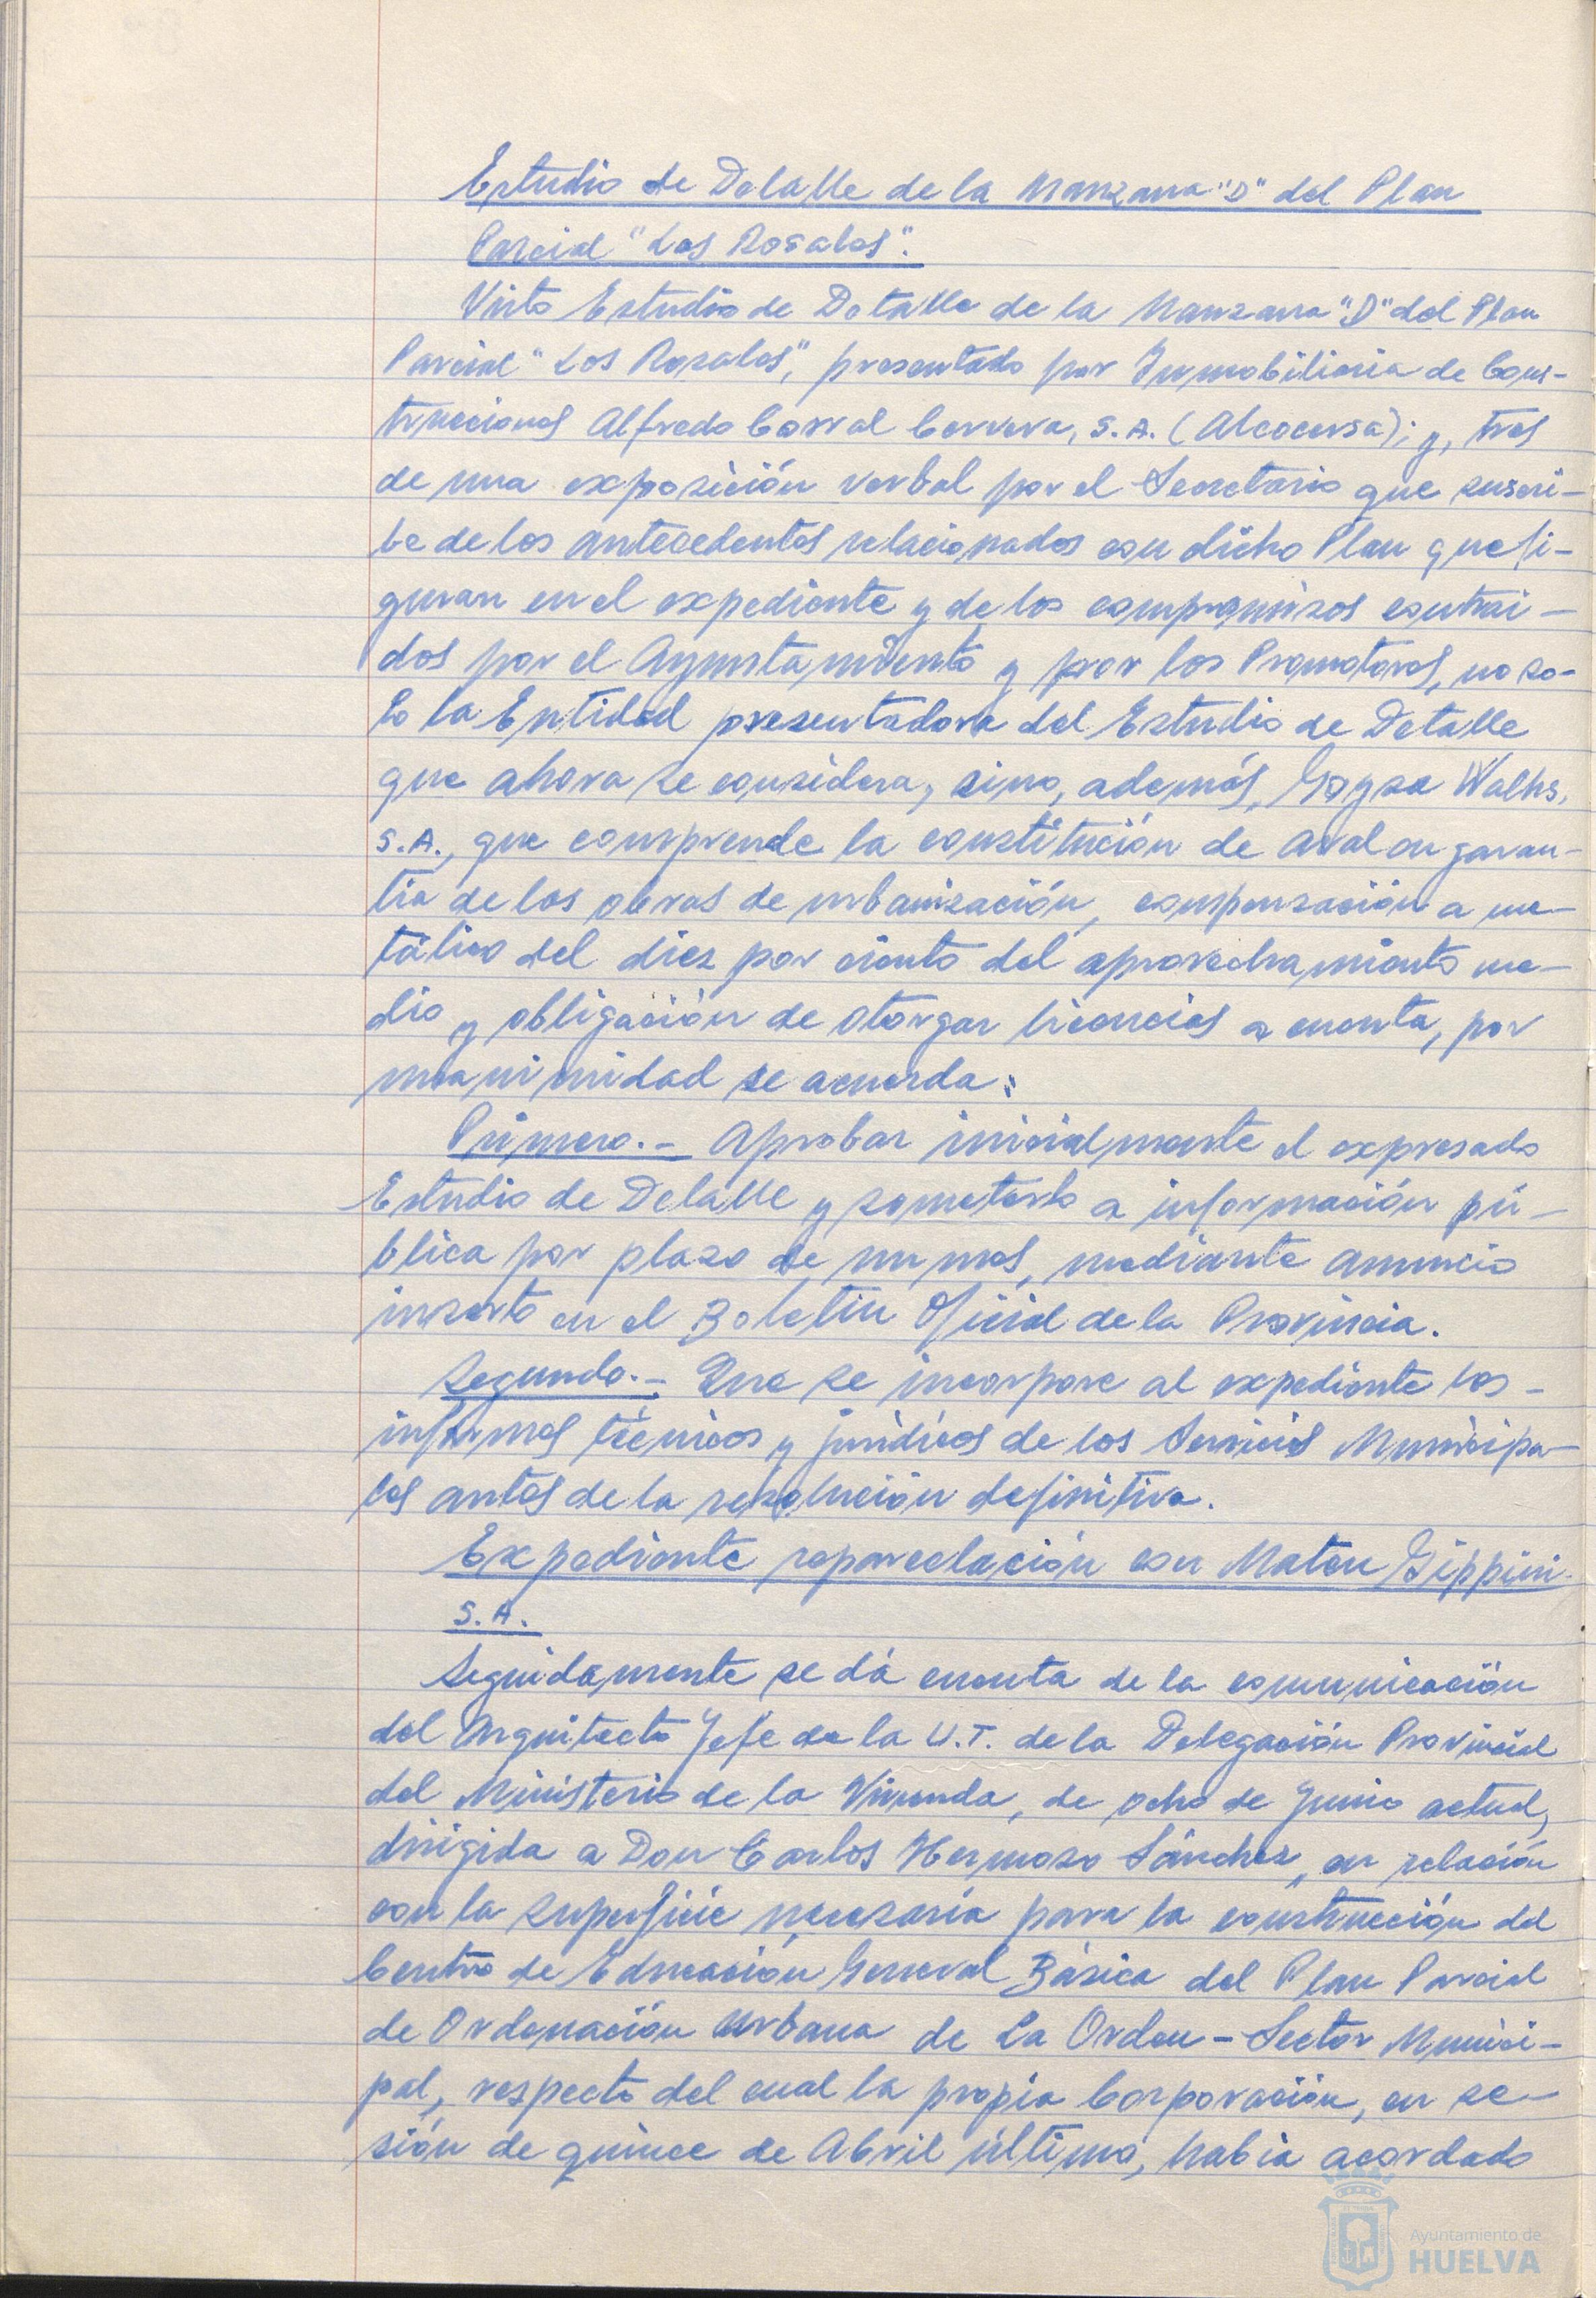 Estudio de Detalle de la Manzana "D" del Plan
Parcial "Los Rosales".
Visto Estudio de Detalle de la Manzana "D" del Plan
Parcial "Los Rosales", presentado por Inmobiliaria de Cons-
trucciones Alfredo Corral Cervera, S.A. (Alcocersa); y, tras
de una exposición verbal por el Secretario que suscri-
be de los antecedentes relacionados con dicho Plan que fi-
guran en el expediente y de los compromisos contraí-
dos por el Ayuntamiento y por los Promotores, no so-
lo la Entidad presentadora del Estudio de Detalle
que ahora se considera, sino, además, Goysa Walhs,
S.A., que comprende la constitución de aval en garan-
tía de las obras de urbanización, compensación a me-
tálico del diez por ciento del aprovechamiento me-
dio y obligación de otorgar licencias a cuenta, por
unanimidad se acuerda:
Primero.- Aprobar inicialmente el expresado
Estudio de Detalle y someterlo a información pú-
blica por plazo de un mes, mediante anuncio
inserto en el Boletín Oficial de la Provincia.
Segundo.- Que se incorpore al expediente los -
informes técnicos y jurídicos de los Servicios Municipa-
les antes de la resolución definitiva.
Expediente reparcelación con Maten Gippini
S.A.
Seguidamente se dá cuenta de la comunicación
del Arquitecto Jefe de la U.T. de la Delegación Provincial
del Ministerio de la Vivienda, de ocho de Junio actual,
dirigida a Don Carlos Hermoso Sánchez, en relación
con la superficie necesaria para la construcción del
Centro de Educación General Básica del Plan Parcial
de Ordenación Urbana de La Orden - Sector Munici-
pal, respecto del cual la propia Corporación, en se-
sión de quince de Abril último, había acordado
Ayuntamiento de
HUELVA